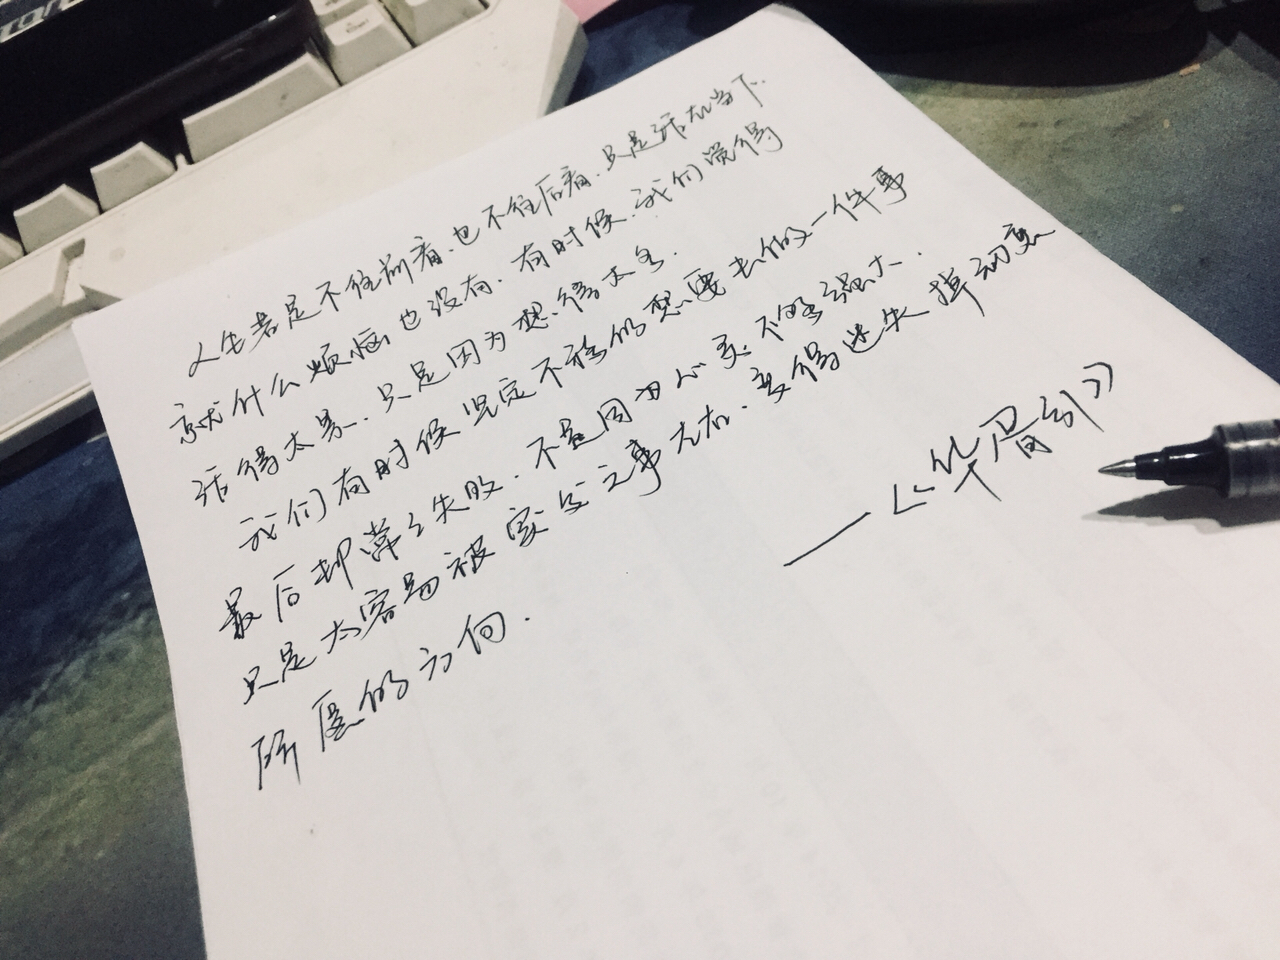 人生若是不往前看、也不往后看、只是活在当下.
就什么烦恼也没有. 有时候. 我们觉得
活得太累. 只是因为想得太多.
我们有时候坚定不移的想要去做一件事
最后却常常失败. 不是因为心灵不够强大.
只是太容易被家之事左右. 变得迷失掉初衷
所愿的方向.
——《华胥引》